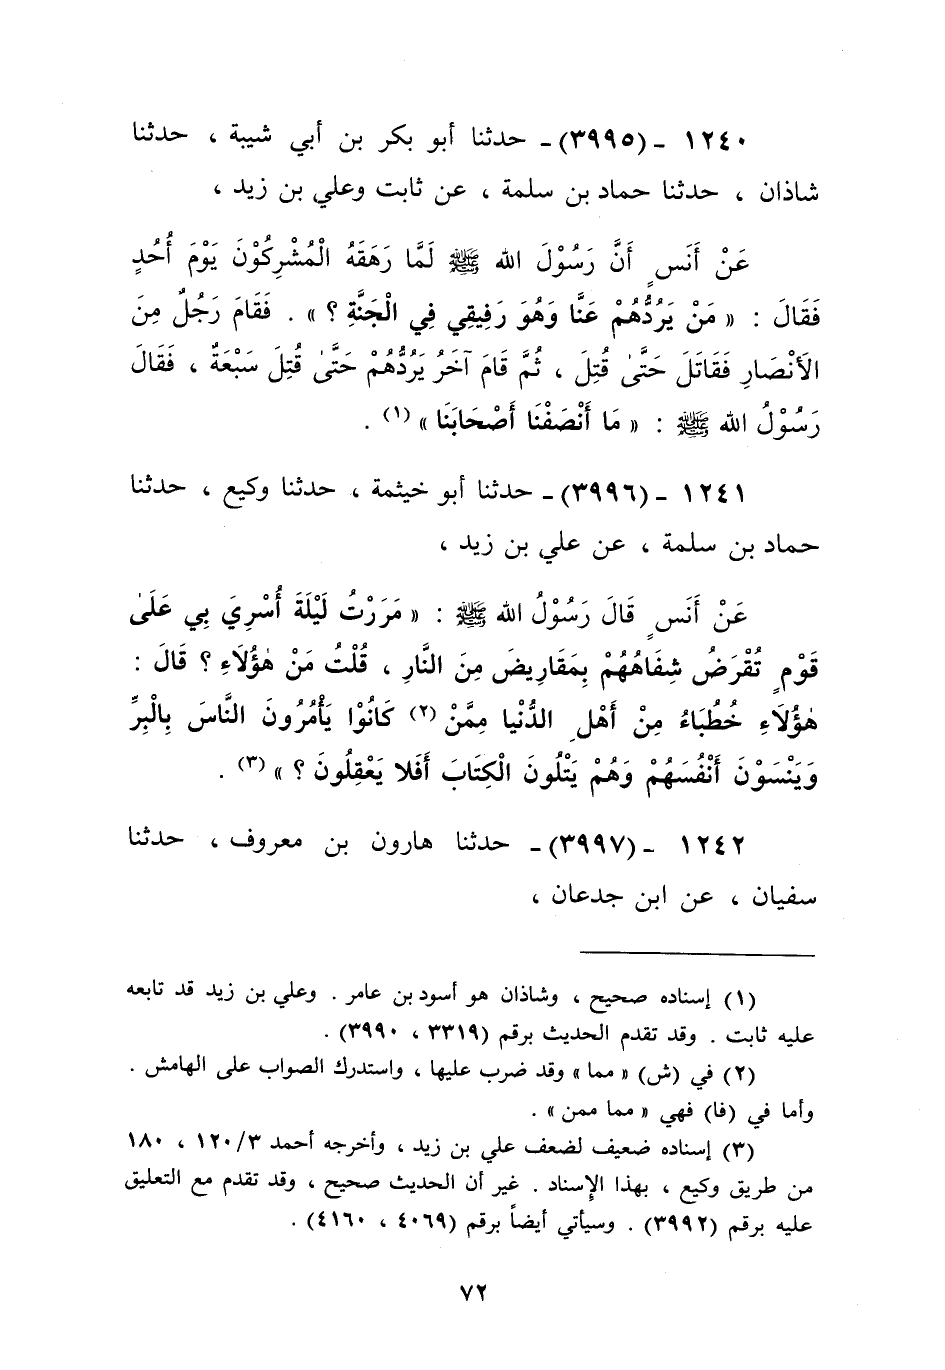 ١٢٤٠ - (٣٩٩٥) - حدثنا أبو بكر بن أبي شيبة ، حدثنا
شاذان ، حدثنا حماد بن سلمة ، عن ثابت وعلي بن زيد ،
عَنْ أَنَسٍ أَنَّ رَسُوْلَ الله ﷺ لَمَّا رَهَقَهُ الْمُشْرِكُوْنَ يَوْمَ أُحُدٍ
فَقَالَ : « مَنْ يَرُدُّهُمْ عَنَّا وَهُوَ رَفِيقِي فِي الْجَنَّةِ ؟ » . فَقَامَ رَجُلٌ مِنَ
الأَنْصَارِ فَقَاتَلَ حَتَّىٰ قُتِلَ ، ثُمَّ قَامَ آخَرُ يَرُدُّهُمْ حَتَّىٰ قُتِلَ سَبْعَةٌ ، فَقَالَ
رَسُوْلُ الله ﷺ : « مَا أَنْصَفْنَا أَصْحَابَنَا » (١) .
١٢٤١ - (٣٩٩٦) - حدثنا أبو خيثمة ، حدثنا وكيع ، حدثنا
حماد بن سلمة ، عن علي بن زيد ،
عَنْ أَنَسٍ قَالَ رَسُوْلُ الله ﷺ : « مَرَرْتُ لَيْلَةَ أُسْرِيَ بِي عَلَىٰ
قَوْمٍ تُقْرَضُ شِفَاهُهُمْ بِمَقَارِيضَ مِنَ النَّارِ ، قُلْتُ مَنْ هٰؤُلَاءِ ؟ قَالَ :
هٰؤُلَاءِ خُطَبَاءُ مِنْ أَهْلِ الدُّنْيَا مِمَّنْ (٢) كَانُوْا يَأْمُرُونَ النَّاسَ بِالْبِرِّ
وَيَنْسَوْنَ أَنْفُسَهُمْ وَهُمْ يَتْلُونَ الْكِتَابَ أَفَلا يَعْقِلُونَ ؟ » (٣) .
١٢٤٢ - (٣٩٩٧) - حدثنا هارون بن معروف ، حدثنا
سفيان ، عن ابن جدعان ،
(١) إسناده صحيح ، وشاذان هو أسود بن عامر . وعلي بن زيد قد تابعه
عليه ثابت . وقد تقدم الحديث برقم (٣٣١٩ ، ٣٩٩٠) .
(٢) في (ش) « مما » وقد ضرب عليها ، واستدرك الصواب على الهامش .
وأما في (فا) فهي « مما ممن » .
(٣) إسناده ضعيف لضعف علي بن زيد ، وأخرجه أحمد ١٢٠/٣ ، ١٨٠
من طريق وكيع ، بهذا الإِسناد . غير أن الحديث صحيح ، وقد تقدم مع التعليق
عليه برقم (٣٩٩٢) . وسيأتي أيضاً برقم (٤٠٦٩ ، ٤١٦٠) .
٧٢